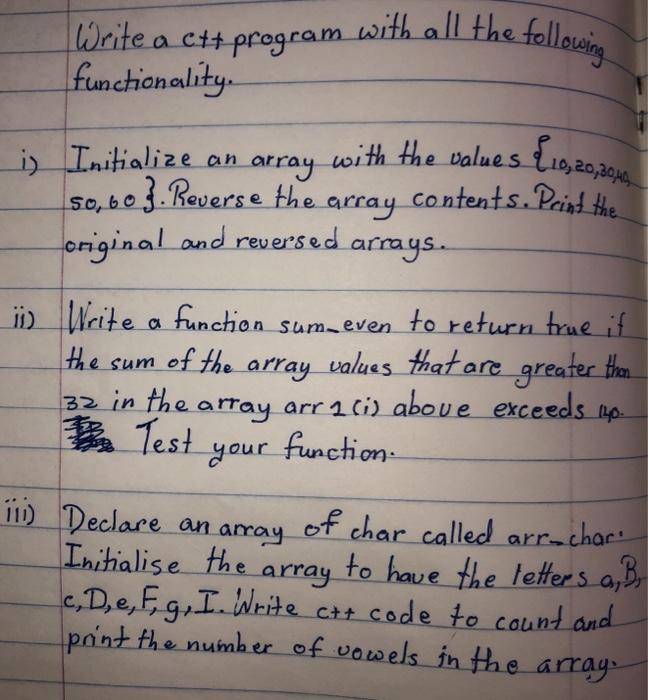 Write a c++ program with all the following
functionality.
i) Initialize an array with the values {10,20,30,40,
50,60}. Reverse the array contents. Print the
original and reversed arrays.
ii) Write a function sum_even to return true if
the sum of the array values that are greater than
32 in the array arr1(i) above exceeds 140.
Test your function.
iii) Declare an array of char called arr_char.
Initialise the array to have the letters a, B,
c, D, e, F, g, I. Write c++ code to count and
print the number of vowels in the array.